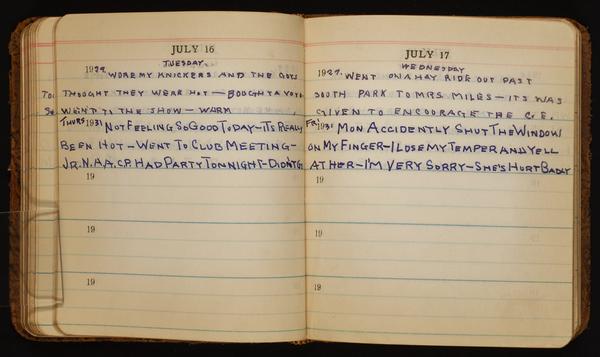 JULY 16
TUESDAY.
1929. WORE MY KNICKERS AND THE GUYS
THOUGHT THEY WERE HOT — BOUGHT A YOYO
WENT TO THE SHOW — WARM
THURS 1931 NOT FEELING SO GOOD TODAY – ITS REALLY
BEEN HOT – WENT TO CLUB MEETING –
JR. N.A.A.C.P. HAD PARTY TONNIGHT – DIDN'T G
19
19
19
JULY 17
WEDNESDAY
1929. WENT ON A HAY RIDE OUT PAST
SOUTH PARK TO MRS. MILES – ITS WAS
GIVEN TO ENCOURAGE THE C.E.
FRI. 1931 MON ACCIDENTLY SHUT THE WINDOW
ON MY FINGER – I LOSE MY TEMPER AND YELL
AT HER – I'M VERY SORRY – SHE'S HURT BADLY
19
19
19